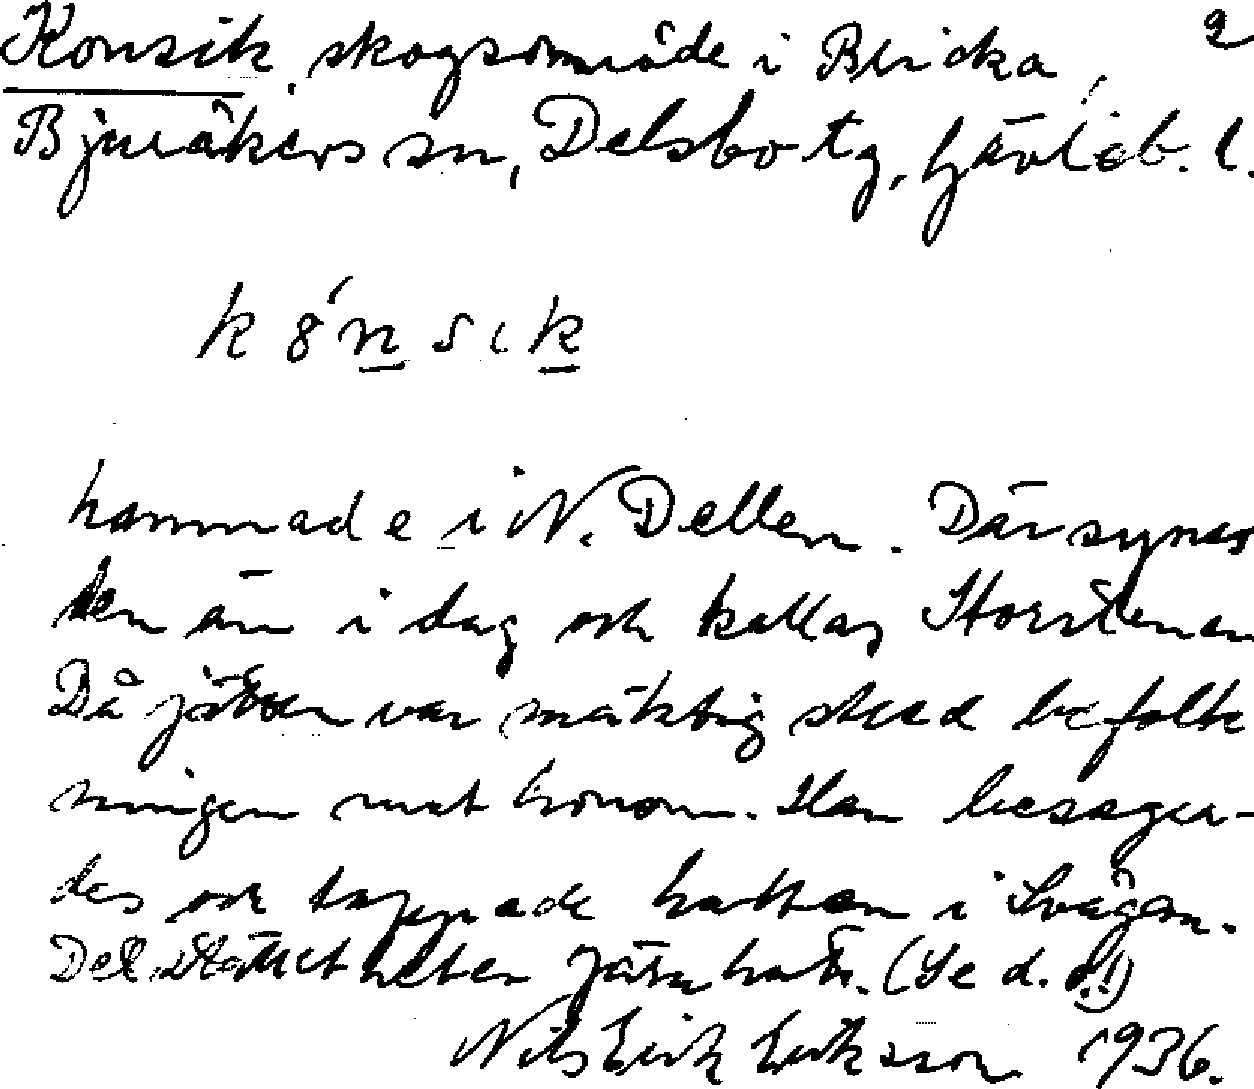 Konsik, skogsområde i Bricka, 2
Bjuråkers sn, Delsbo tg, Gävleb. l.
kȣ́nsik
hamnade i N. Dellen. Där synes
den än i dag och kallas Storstenen
Då jätten var mäktig stred befolk
ningen mot honom. Han besegra-
des och tappade hatten i Svågan.
Det stället heter Järnhatt. (Se d. o.!)
Nils Erik Eriksson 1936.